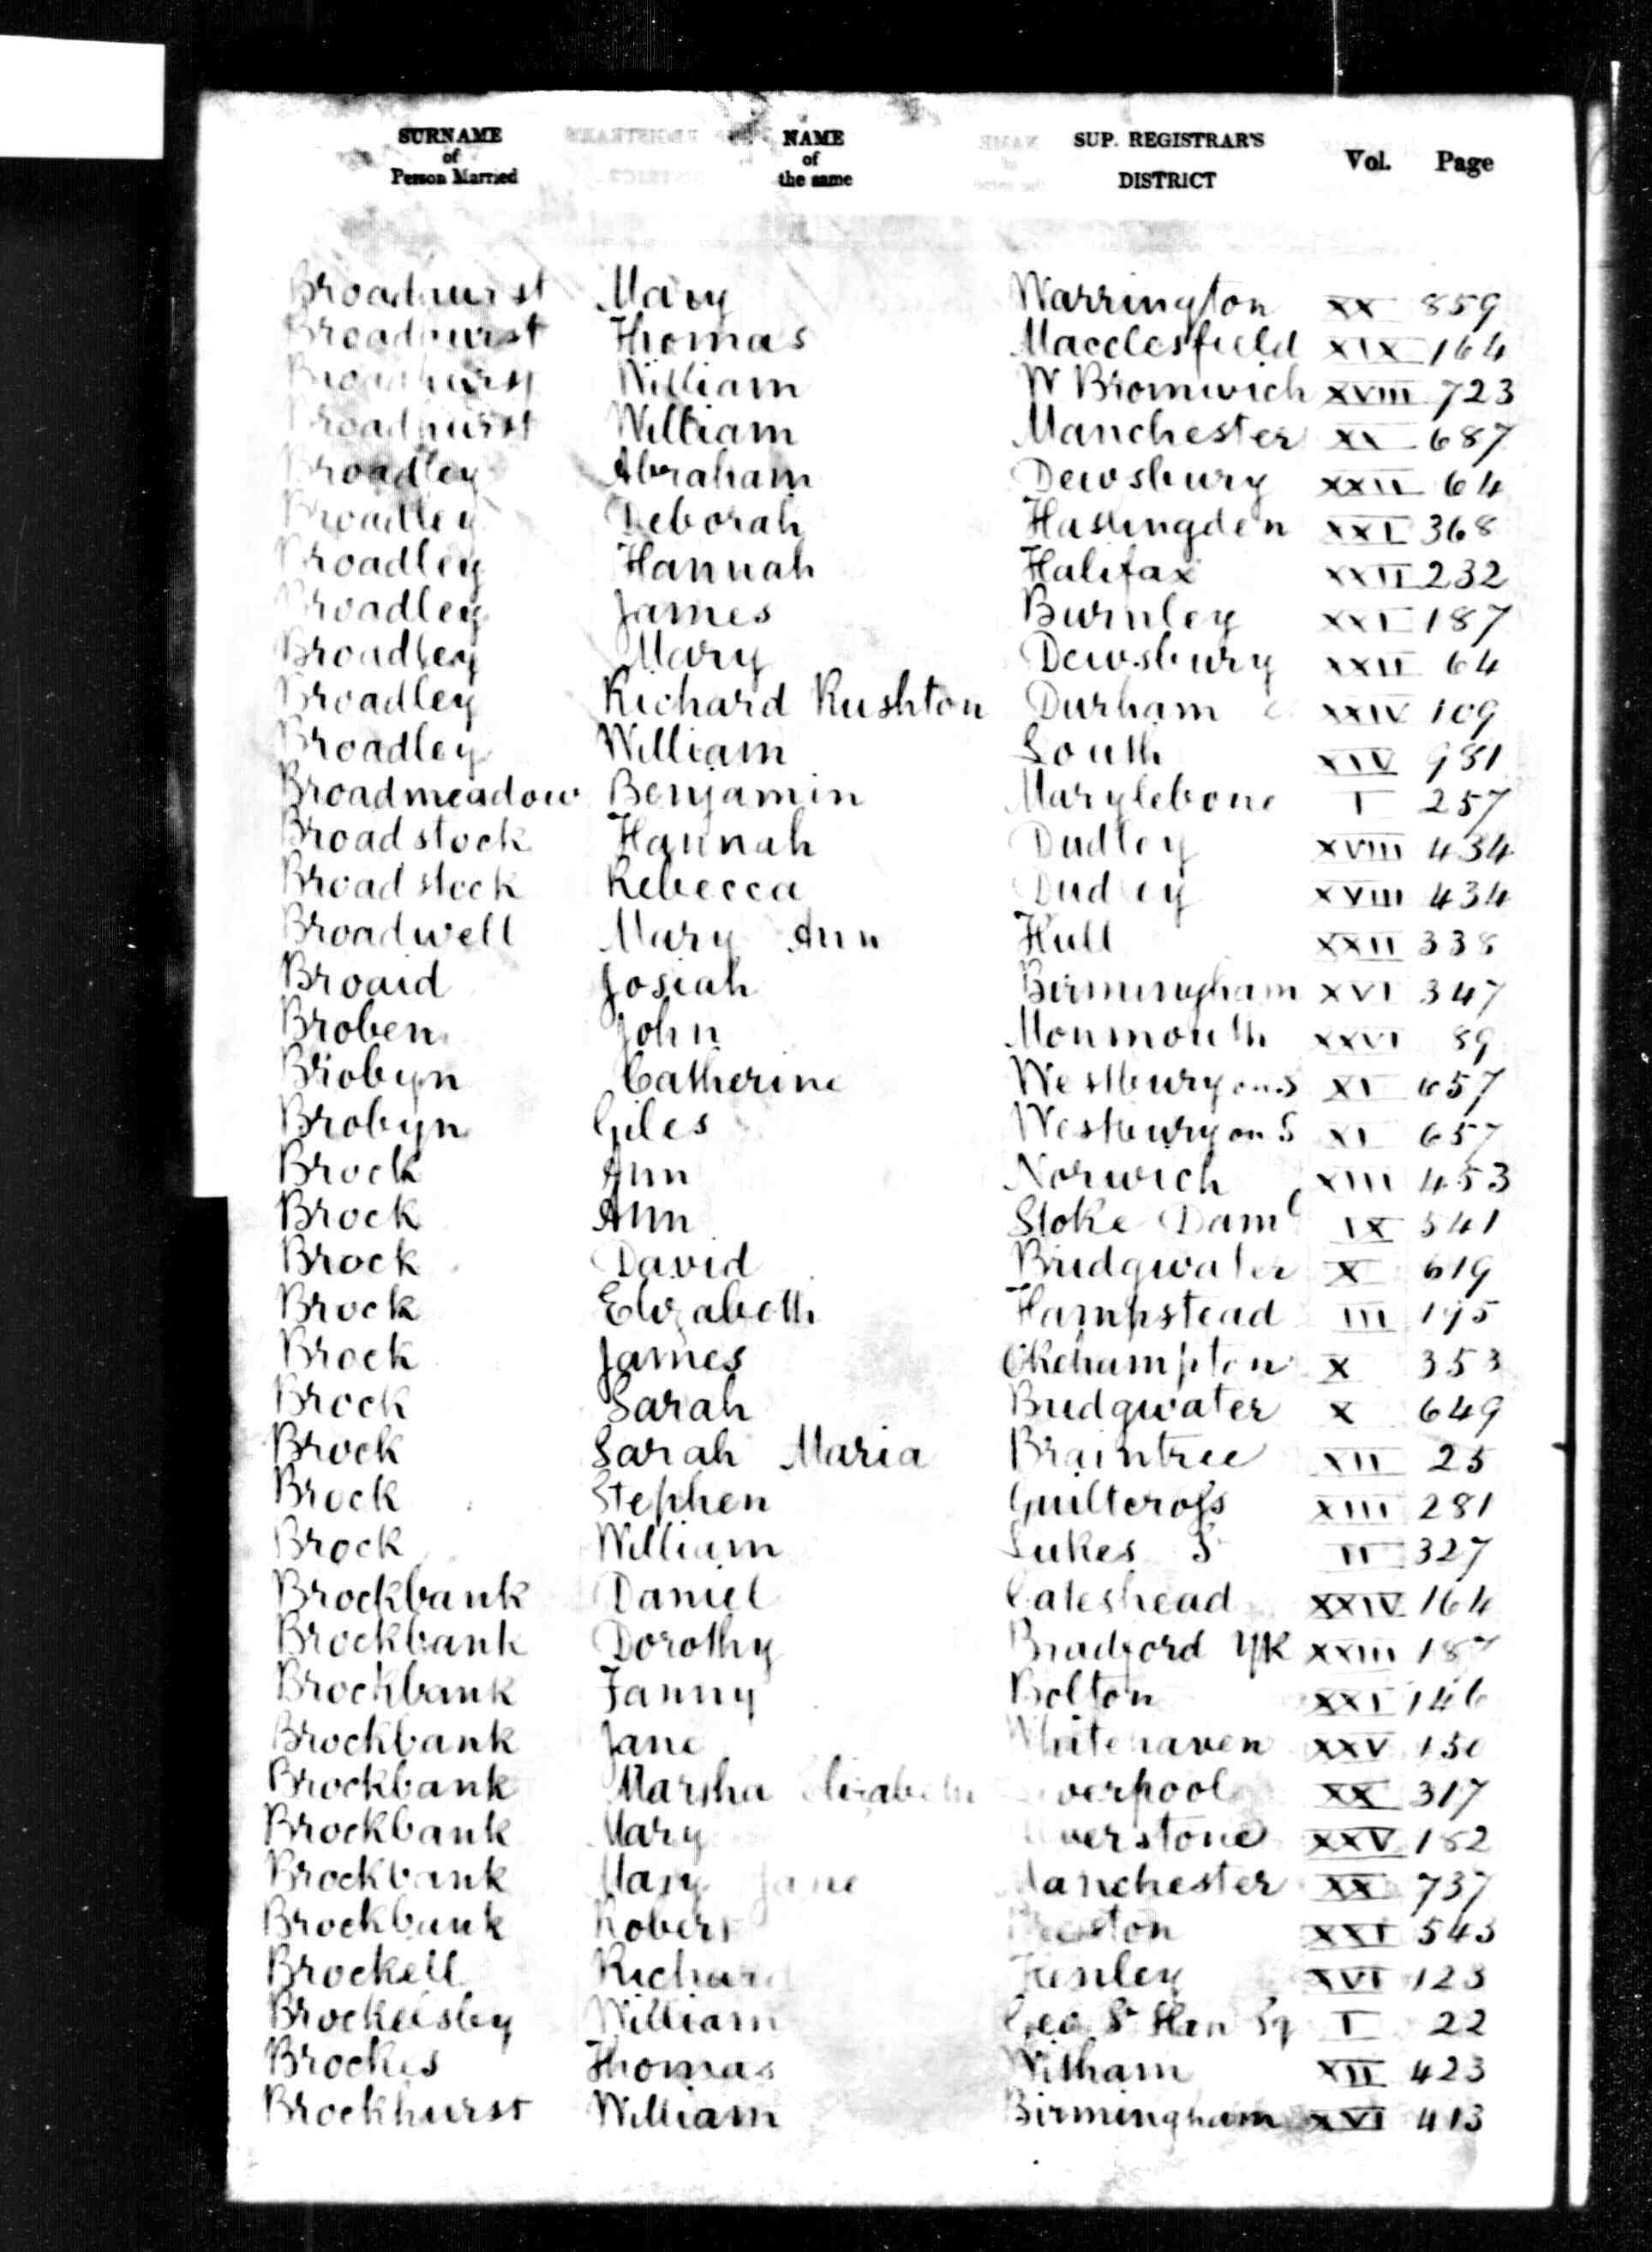 SURNAME of Person Married NAME of the same SUP. REGISTRAR'S DISTRICT Vol. Page
Broadhurst Mary Warrington XX 859
Broadhurst Thomas Macclesfield XIX 164
Broadhurst William W Bromwich XVIII 723
Broadhurst William Manchester XX 687
Broadley Abraham Dewsbury XXII 64
Broadley Deborah Haslingden XXI 368
Broadley Hannah Halifax XXII 232
Broadley James Burnley XXI 187
Broadley Mary Dewsbury XXII 64
Broadley Richard Rushton Durham XXIV 109
Broadley William Louth XIV 981
Broadmeadow Benjamin Marylebone I 257
Broadstock Hannah Dudley XVIII 434
Broadstock Rebecca Dudley XVIII 434
Broadwell Mary Ann Hull XXII 338
Broaid Josiah Birmingham XVI 347
Broben John Monmouth XXVI 89
Brobyn Catherine Westbury on S XI 657
Brobyn Giles Westbury on S XI 657
Brock Ann Norwich XIII 453
Brock Ann Stoke Daml IX 541
Brock David Bridgwater X 619
Brock Elizabeth Hampstead III 195
Brock James Okehampton X 353
Brock Sarah Bridgwater X 649
Brock Sarah Maria Braintree XII 25
Brock Stephen Guiltcross XIII 281
Brock William Lukes St II 327
Brockbank Daniel Gateshead XXIV 164
Brockbank Dorothy Bradford YK XXIII
Brockbank Fanny Bolton XXI 146
Brockbank Jane Whitehaven XXV 130
Brockbank Marsha Elizabeth Liverpool XX 317
Brockbank Mary Ulverstone XXV 182
Brockbank Mary Jane Manchester XX 737
Brockbank Robert Preston XXI 543
Brockell Richard Henley XVI 123
Brockelsby William Geo St Han Sq I 22
Brockes Thomas Witham XII 423
Brockhurst William Birmingham XVI 413